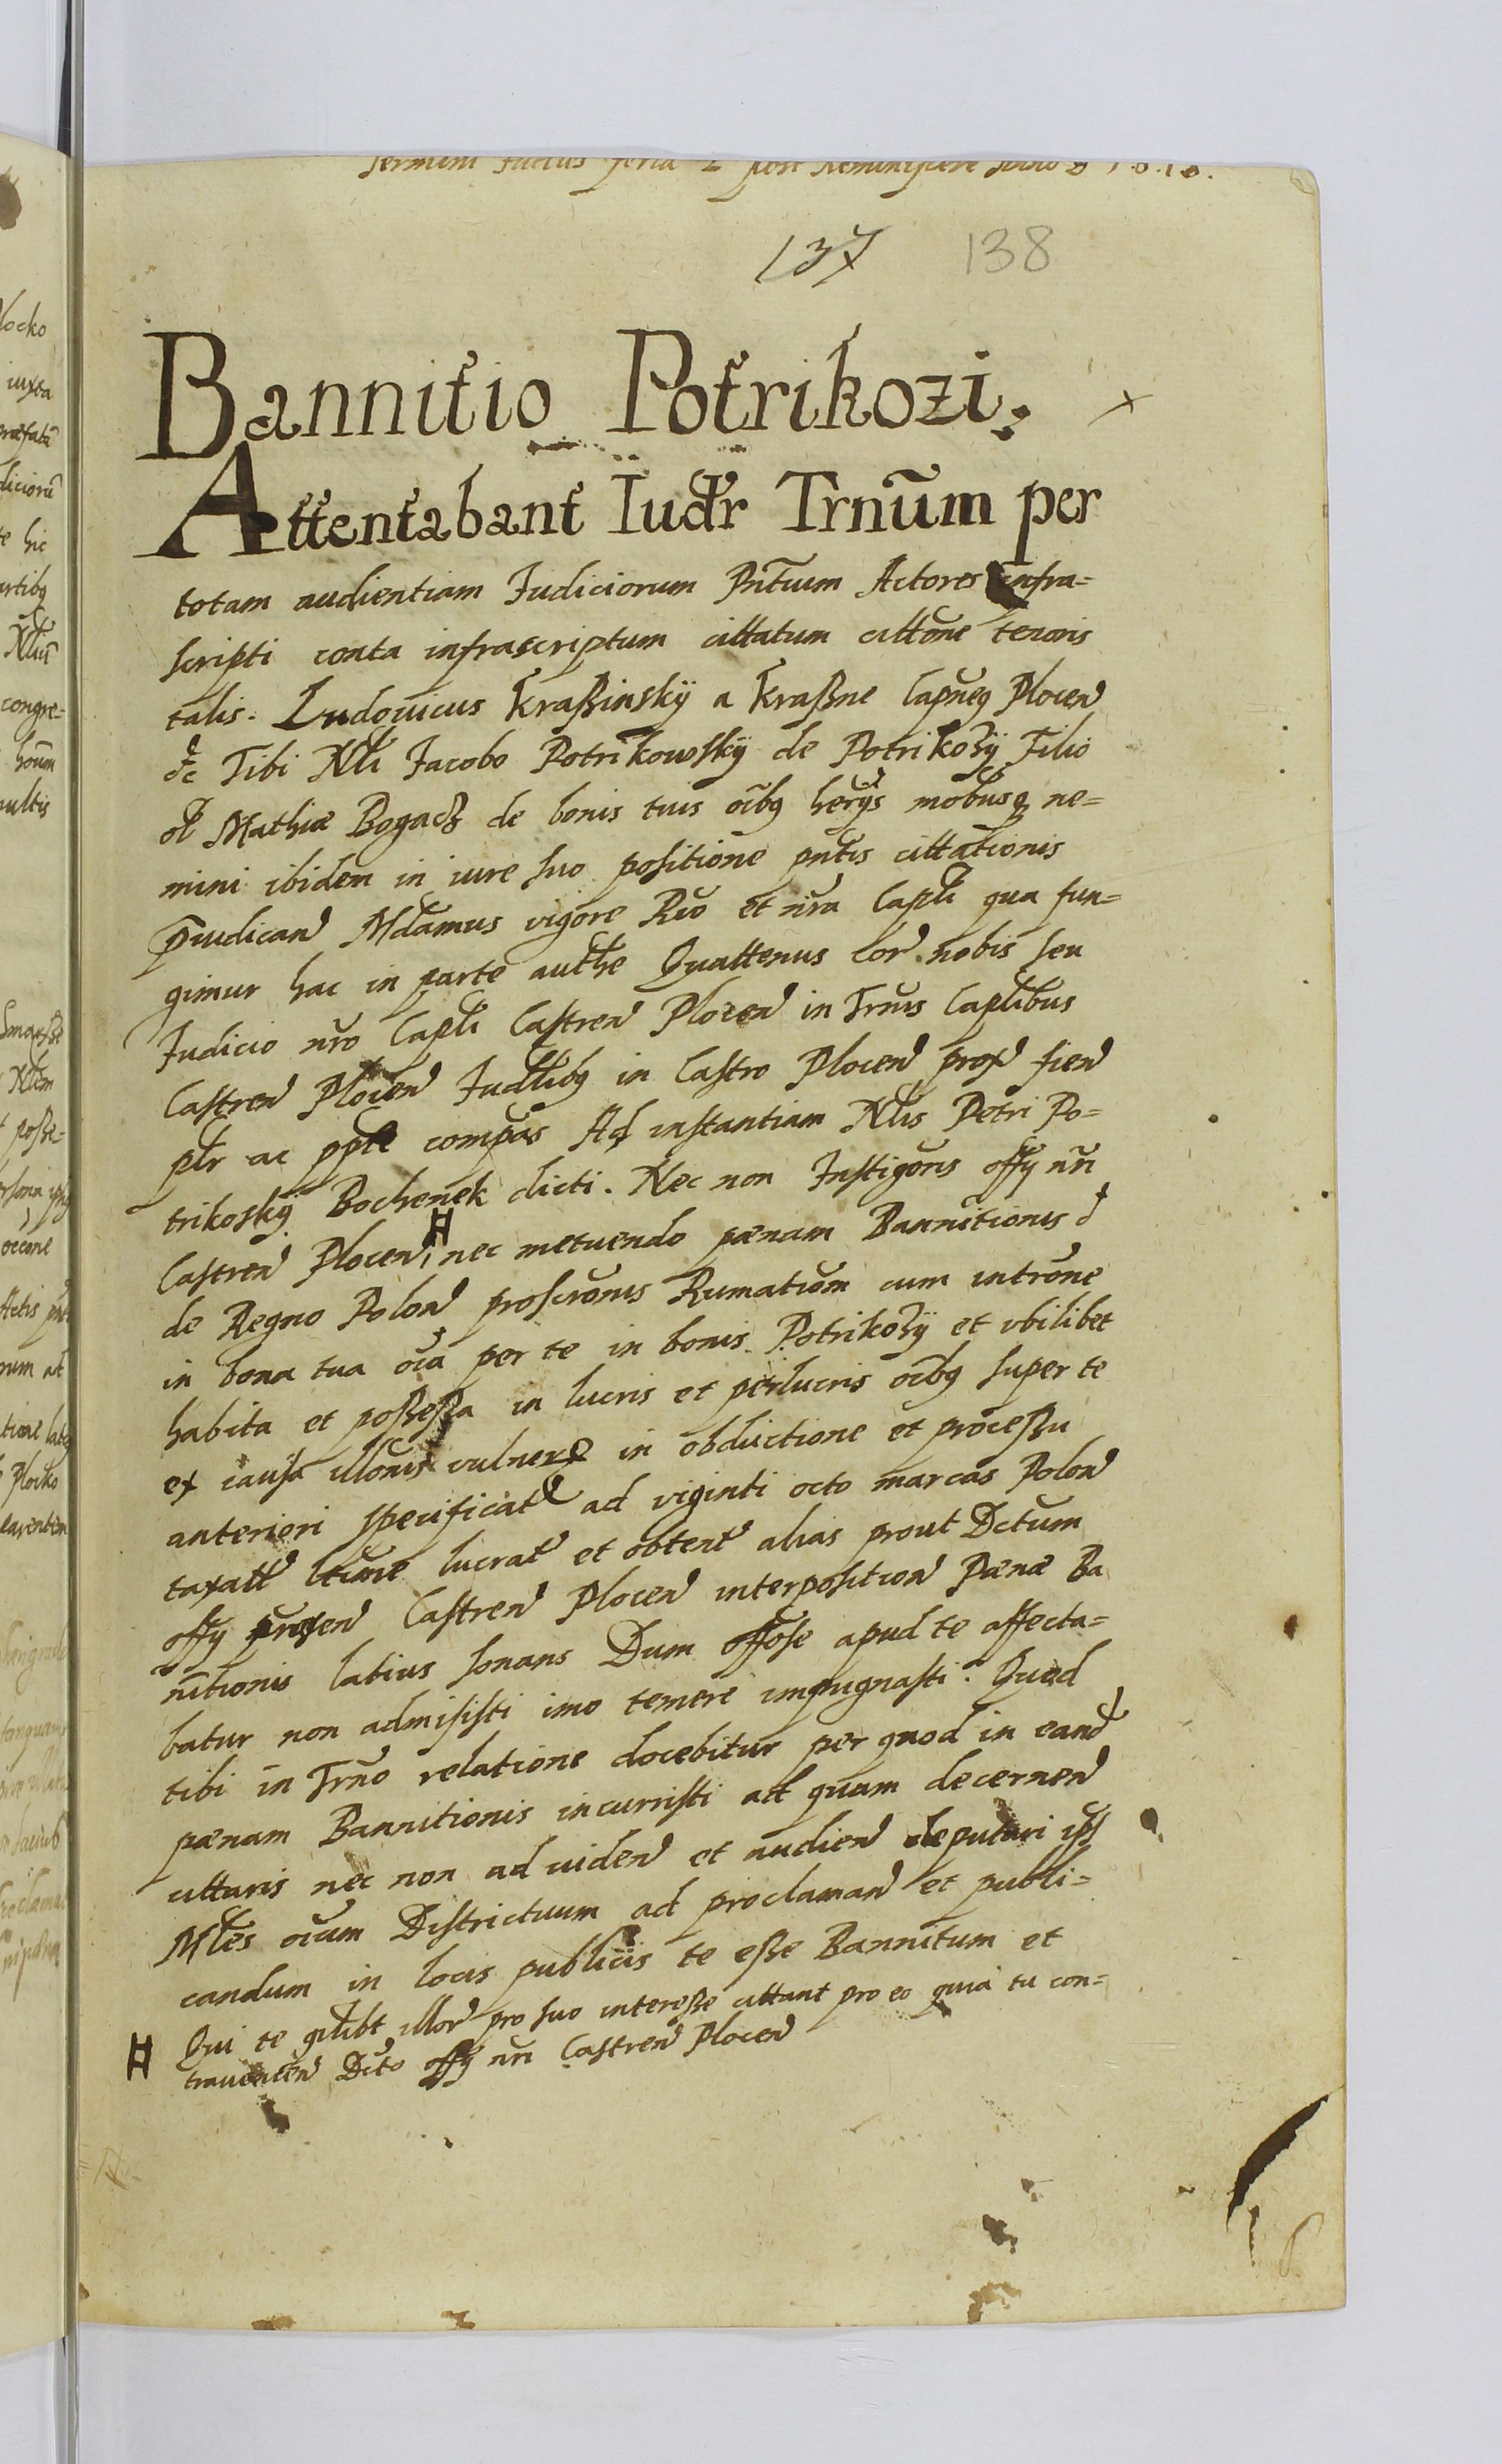 Termini Factus feria 2 post Reminiscere Anno D 1.6.18.
137 138
Bannitio Potrikozi.
Attentabant Iudr Trnum per
totam audientiam Iudiciorum Pntium Actores infra=
scripti conta infrascriptum cittatum cittone tenoris
talis. Ludovicus Kraßinskÿ a Kraßne Capneq Plocen
&c Tibi Nli Jacobo Potrikowskÿ de Potrikozÿ Filio
ol Mathiæ Bogacz de bonis tuis oibq herÿs mobusq ne=
mini ibidem in iure suo positione pntis cittationis
p̄iudican Mdamus vigore Rio et nra Capli qua fun=
gimur hac in parte authe Quattenus Cor nobis seu
Iudicio nro Capli Castren Plocen in Trnis Caplibus
Castren Plocen Iudlibq in Castro Plocen prox fien
plr ac ppte compas Ad instantiam Nlis Petri Po=
trikoskÿ Bochenek dicti. Nec non Instigoris offÿ nri
Castren Plocen # nec metuendo pænam Bannitionis
de Regno Polon proscronis Rumatiom cum introne
in bona tua oia per te in bonis Potrikozÿ et ubilibet
habita et poßeßa in lucris et perlucris oibq super te
ex causa illonis vulner in obductione et proceßu
anteriori specificat ad viginti octo marcas Polon
taxatt ltime lucrat et obtent alias prout Dctum
offÿ Castren Plocen interposition Pænæ Ba
nitionis latius sonans Dum offose apud te affecta=
batur non admisisti imo temere impugnasti. Quod
tibi in Trno relatione docebitur per quod in eand
pænam Bannitionis incurristi ad quam decernen
cittaris nec non ad viden et audien deputari ipl
Mles oium Districtuum ad proclaman et publi=
candum in locis publicis te eße Bannitum et
# Qui te qilibt illor pro suo intereße cittant pro eo quia tu con=
travenien Dcto offÿ nri Castren Plocen